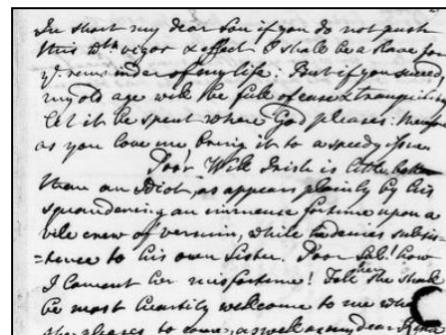 In short my dear Son if you do not push
this wth. vigor & effect I shall be a slave for
ye. remainder of my life: But if you succeed
my old age will be full of ease & tranquility
let it be spent where God pleases:
as you love me, bring it to a speedy issue
Poor Will Irish is little better
than an Idiot, as appears plainly by his
squandering an immense fortune upon a
vile crew of vermin, while he denies subsis
=tence to his own Sister. Poor Sal! how
I lament her misfortune! Tell her she should
be most heartily wellcome to me
she pleases to come, as well as my dear